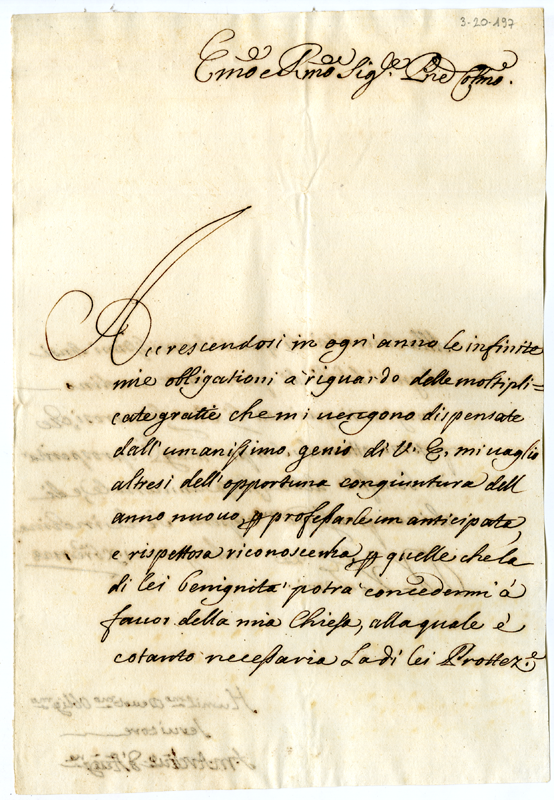 3-20-197
Emo e Rmo Sig.e Pne Colmo.
Accrescendosi in ogni anno le infinite
mie obligationi a riguardo delle moltipli=
cate gratie che mi vengono dispensate
dall'umanissimo genio di V. E. mi vaglio
altresi dell'opportuna congiuntura dell
anno nuovo, p professarle un anticipata,
e rispettosa riconoscenza, p quelle che la
di lei benignità potrà concedermi à
favor della mia Chiesa, alla quale è
cotanto necessaria La di lei Prottez.e